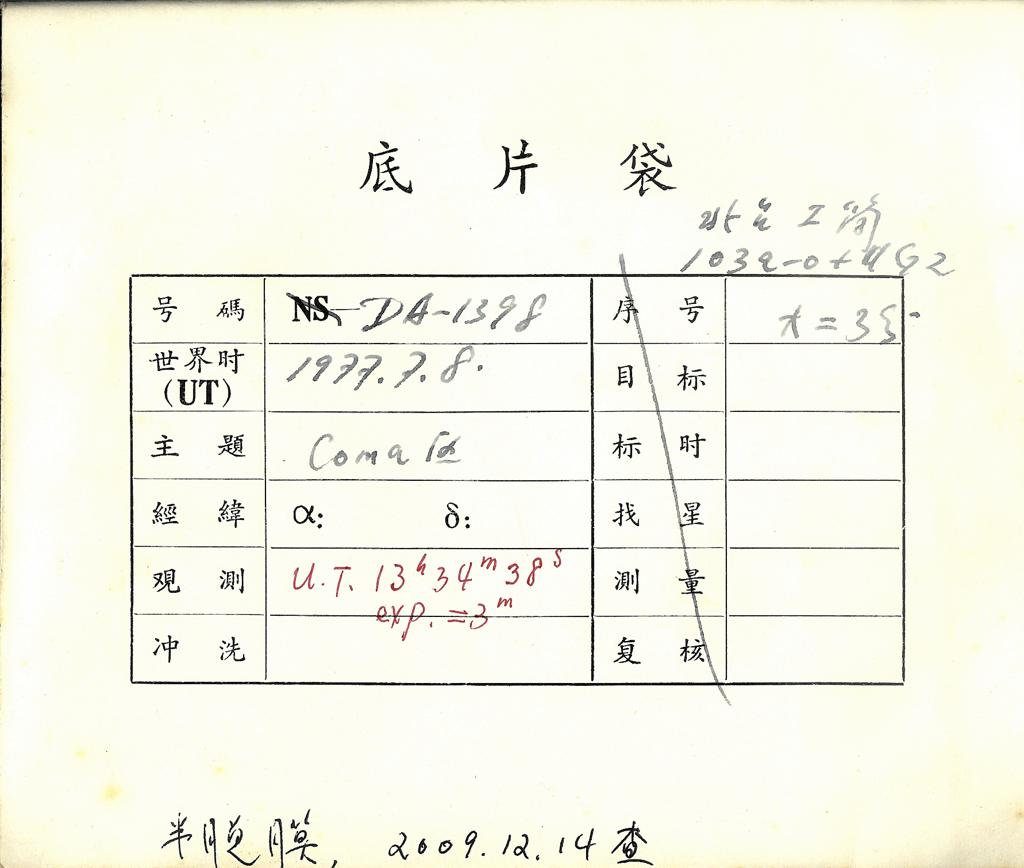 底片袋
工
103a-O+
号碼 NS-DA-1398 序号
世界时(UT) 1977.7.8. 目标
主題 Coma 区 标时
經緯 α: δ: 找星
观測 U.T. 13h34m38s 測量
exp. =3m
冲洗 复核
半脱膜, 2009.12.14查